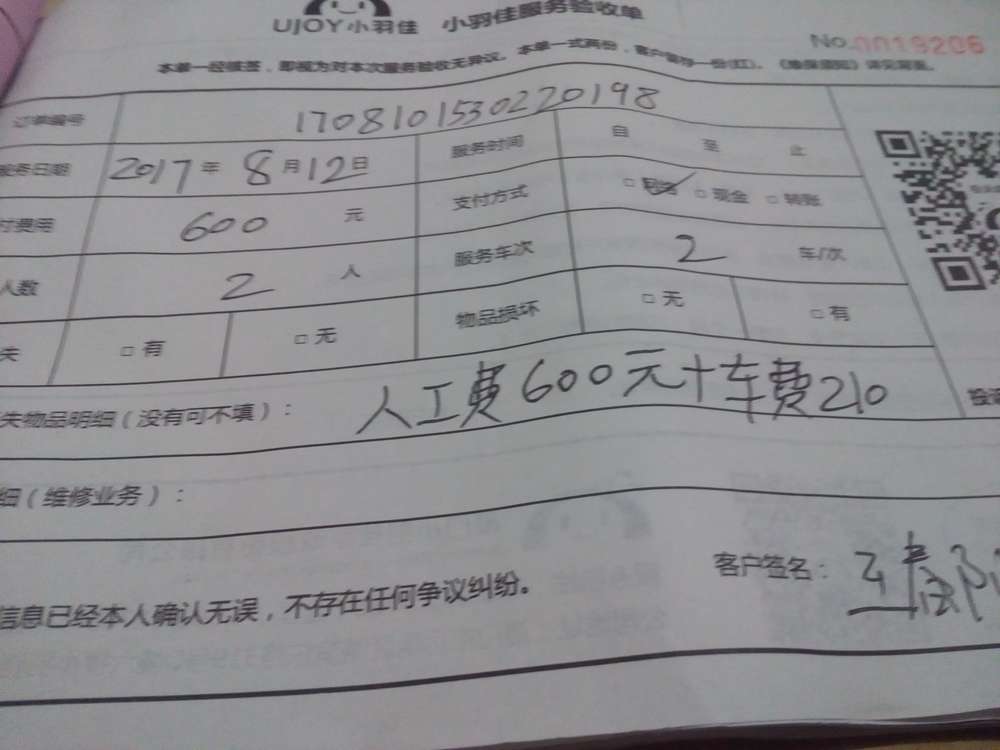 UJOY小羽佳 小羽佳服务验收单
No.0019206
本单一经核签,即视为对本次服务验收无异议。本单一式两份,客户留存一份(红)。
订单编号 170810153022 0198
服务日期 2017年8月12日 服务时间 自 至 止
付费用 600 元 支付方式 □ □现金 □转账
人数 2 人 服务车次 2 车/次
失 □有 □无 物品损坏 □无 □有
失物品明细(没有可不填): 人工费600元+车费210
细(维修业务):
信息已经本人确认无误,不存在任何争议纠纷。
客户签名: